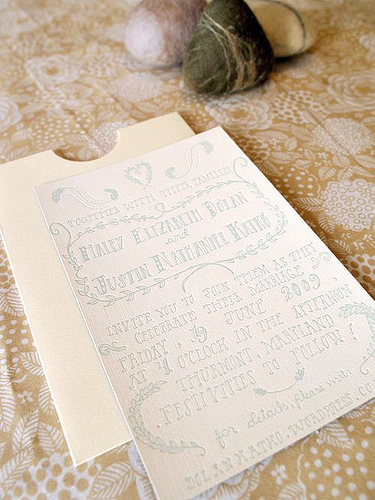 TOGETHER WITH THEIR FAMILIES
HALEY ELIZABETH DOLAN
and
JUSTIN NATHANIEL KATKO
INVITE YOU TO JOIN THEM AS THEY
CELEBRATE THEIR MARRIAGE
FRIDAY, 19 JUNE 2009
AT 4 O'CLOCK IN THE AFTERNOON
THURMONT, MARYLAND
FESTIVITIES TO FOLLOW!
for details, please visit:
DOLANKATKO.WORDPRESS.CO